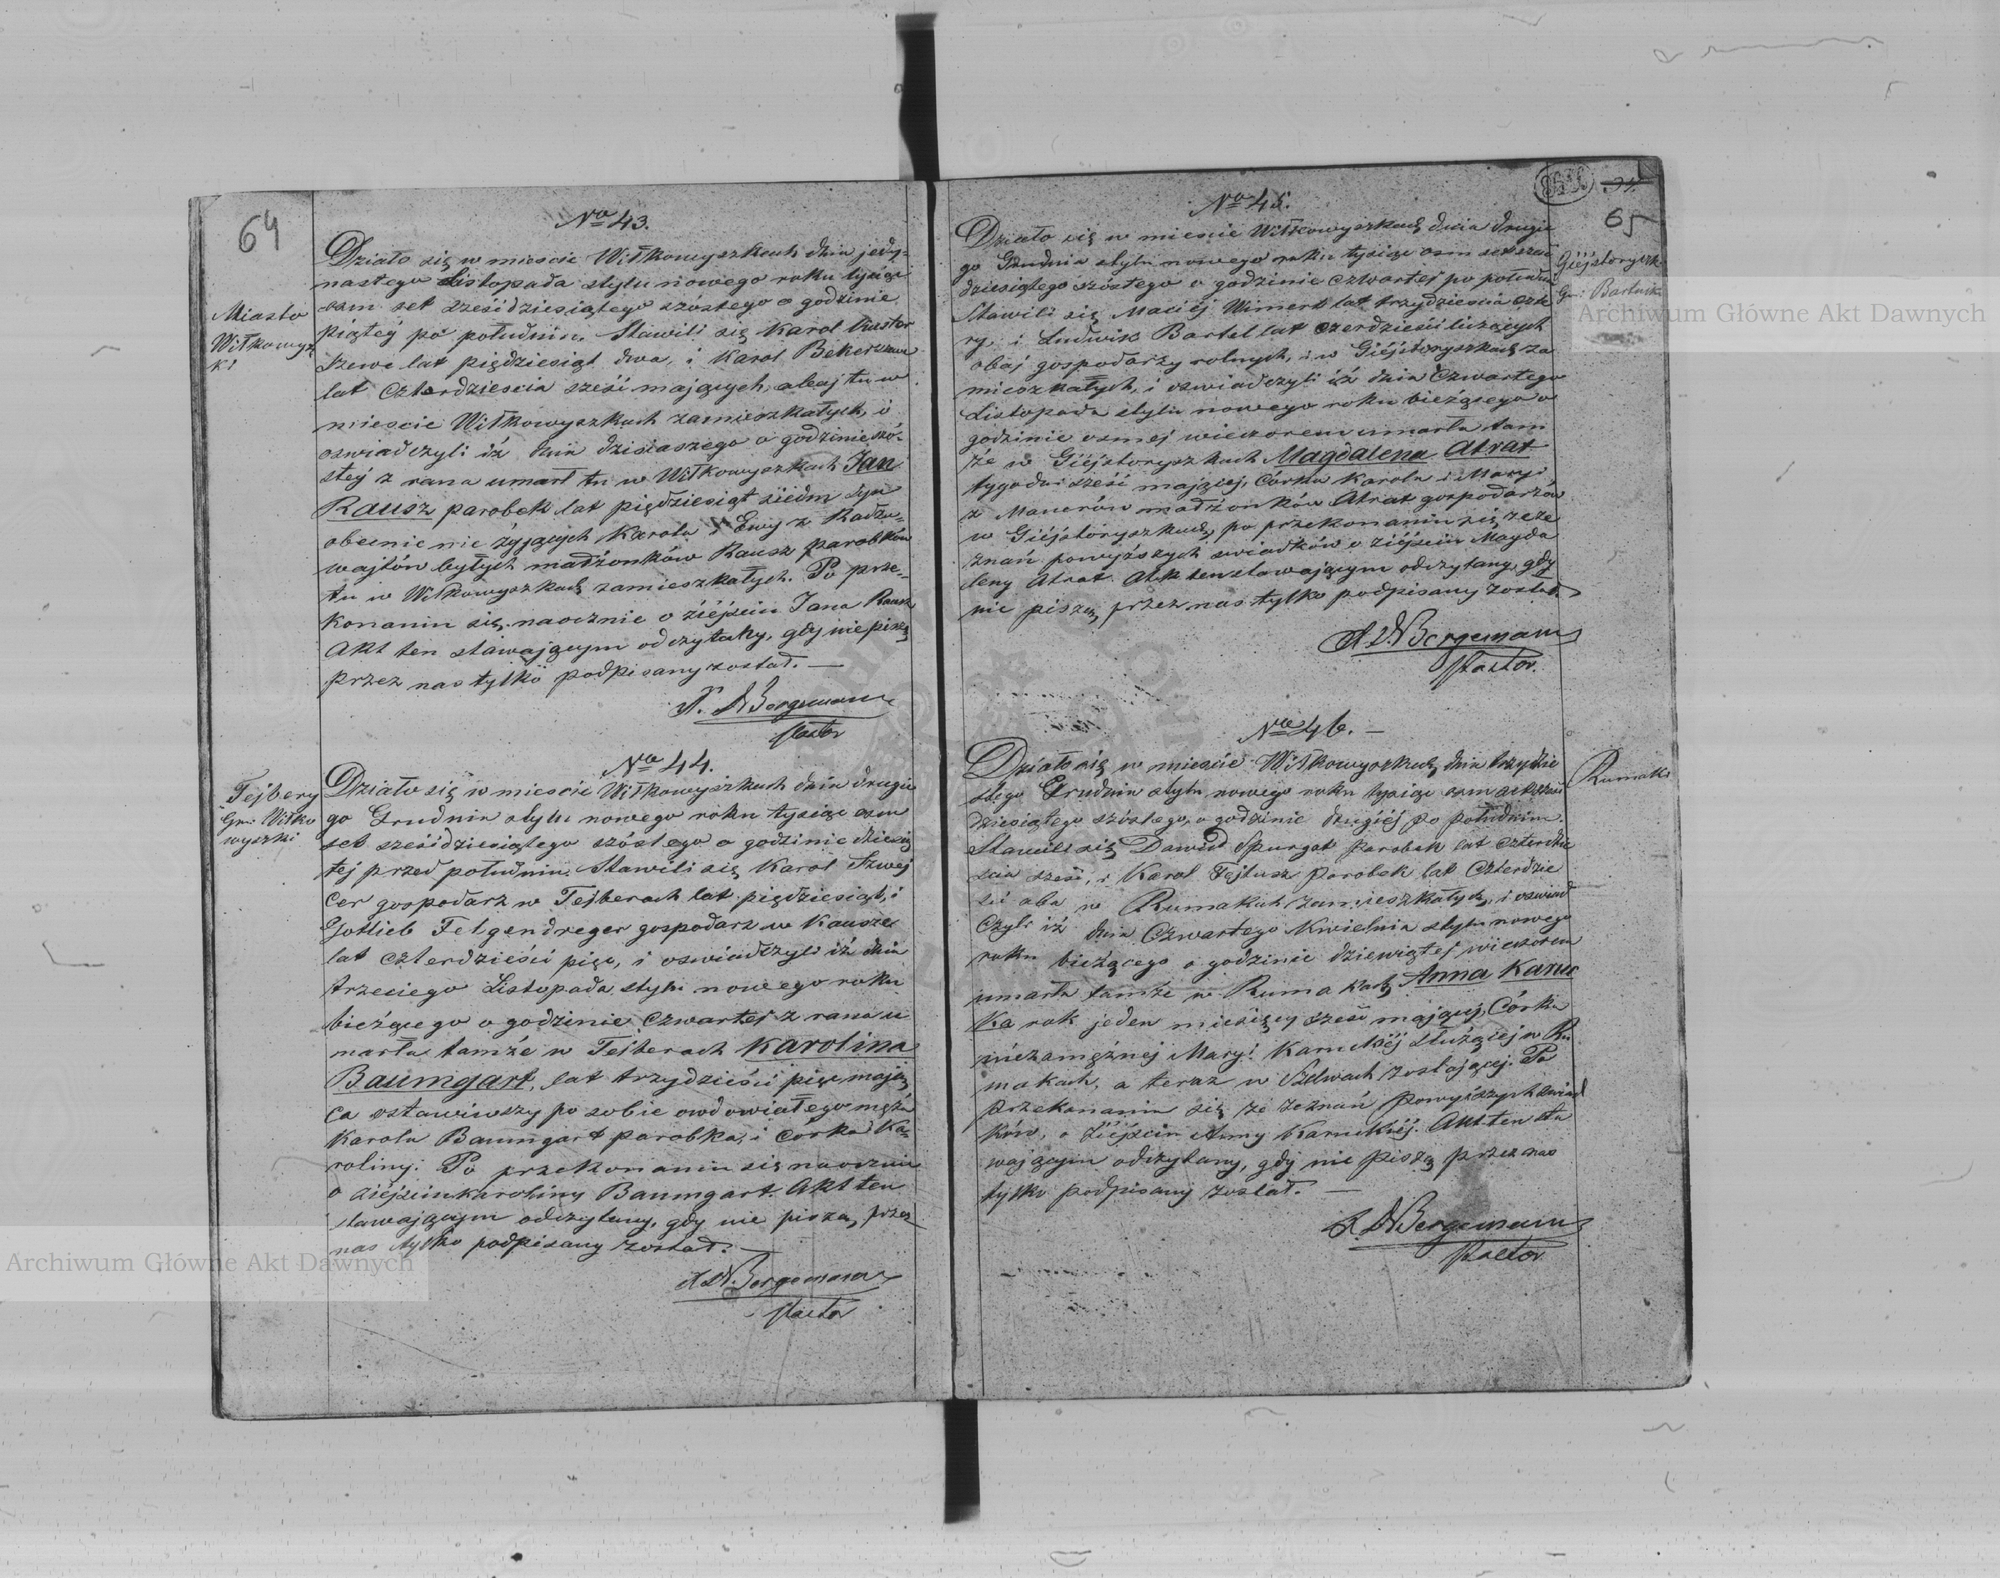 64
No 43.
Miasto
Wiłkowysz
ki
Działo się w mieście Wiłkowyszkach dnia jedy-
nastego Listopada stylu nowego roku tysiąc
osm set sześćdziesiątego szóstego o godzinie
piątej po południu. Stawili się Karol
szewc lat pięćdziesiąt dwa, i Karol
lat czterdzieścia sześć mających, obaj tu w
mieście Wiłkowyszkach zamieszkałych, i
oswiadczyli iż dnia dzisiaszego o godzinie szó-
stej z rana umarł tu w Wiłkowyszkach Jan
Rausz parobek lat pięćdziesiąt siedm syn
obecnie nie żyjących Karola i Ewy z Radzu-
wajtów byłych małżonków Rausz parobków
tu w Wiłkowyszkach zamieszkałych. Po prze-
konaniu się naocznie o zéjściu Jana Rausz
Akt ten stawającym odczytany, gdy nie piszą
przez nas tylko podpisany został. —
Bergemann
Pastor
No 44.
Tejbery
Gm: Wiłko
wyszki
Działo się w mieście Wiłkowyszkach dnia drugie
go Grudnia stylu nowego roku tysiąc osm
set sześćdziesiątego szóstego o godzinie dziesią
tej przed południu. Stawili się Karol Szwej
cer gospodarz w Tejberach lat pięćdziesiąt, i
Gotlieb Felgendreger gospodarz w Kausze
lat czterdzieści pięć, i oswiadczyli iż dnia
trzeciego Listopada stylu nowego roku
bieżącego o godzinie czwartej z rana u
marła tamże w Tejberach Karolina
Baumgart, lat trzydzieści pięć mają
ca ostawiwszy po sobie owdowiałego męża
Karola Baumgart parobka, i córkę Ka
roliny. Po przekonaniu się naocznie
o zéjściu Karoliny Baumgart. Akt ten
stawającym odczytany, gdy nie piszą, przez
nas tylko podpisany został. —
Bergemann
Pastor
65
No 45.
Giéjstoryszk
Gm: Bartnik
Działo się w mieście Wiłkowyszkach dnia drugie
go Grudnia stylu nowego roku tysiąc osm set sześć
dziesiątego szóstego o godzinie czwartej po południu
Stawili się Maciéj Wimert lat trzydzieścia czte
ry i Ludwik Bartel lat czerdzieści liczących
obaj gospodarzy rolnych, i w Giéjstoryszkach za
mieszkałych, i oswiadczyli iż dnia czwartego
Listopada stylu nowego roku bieżącego o
godzinie osmej wieczorem umarła tam
że w Giéjstoryszkach Magdalena Atrat
tygodni sześć mającej, Córka Karola i Maryi
z Manerów małżonków Atrat gospodarzów
w Giéjstoryszkach, po przekonaniu się ze ze
znań powyższych swiadków o zéjściu Magda
leny Atrat. Akt ten stawającym odczytany, gdy
nie piszą, przez nas tylko podpisany został.
Bergemann
Pastor.
No 46. —
Rumaki
Działo się w mieście Wiłkowyszkach, dnia trzydzie
stego Grudnia stylu nowego roku tysiąc osm set sześć
dziesiątego szóstego, o godzinie drugiéj po południu.
Stawili się Dawid Spurgat parobek lat czterdzie
ścia sześć, i Karol Fejtusz parobek lat czterdzie
ści oba w Rumakach zamieszkałych, i oswiad
czyli iż dnia czwartego Kwietnia stylu nowego
roku bieżącego o godzinie dziewiątej wieczorem
umarła tamże w Rumakach, Anna Karuc
ka rok jeden miesięcy sześć mającej, Córka
niezamężnéj Maryi Karuckiéj służącéj w Ru
makach, a teraz w Szelwach zostającej. Po
przekonaniu się ze zeznań powyższych swiad
ków, o zéjściu Anny Karuckiéj. Akt ten sta
wającym odczytany, gdy nie piszą przez nas
tylko podpisany został. —
Bergemann
Pastor.
Archiwum Główne Akt Dawnych
Archiwum Główne Akt Dawnych